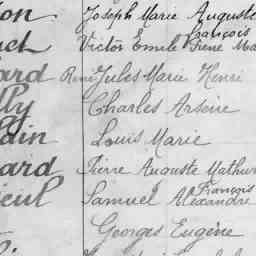 on Joseph Marie Auguste
François
et Victor Emile Pierre Ma
ard René Jules Marie Henri
lly Charles Arsène
din Louis Marie
ard Pierre Auguste Mathur
François
ieul Samuel Alexandre
Georges Eugène